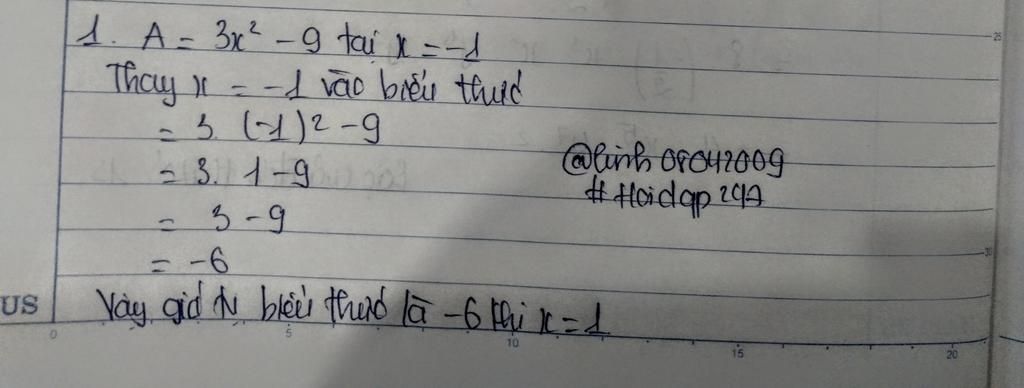 1. A = 3x² - 9 tại x = -1
Thay x = -1 vào biểu thức
= 3. (-1)2 - 9
= 3. 1 - 9
= 3 - 9
= -6
Vậy giá trị biểu thức là -6 thì x = 1
@linh08042009
#Hoidap247
US
25
30
0 5 10 15 20